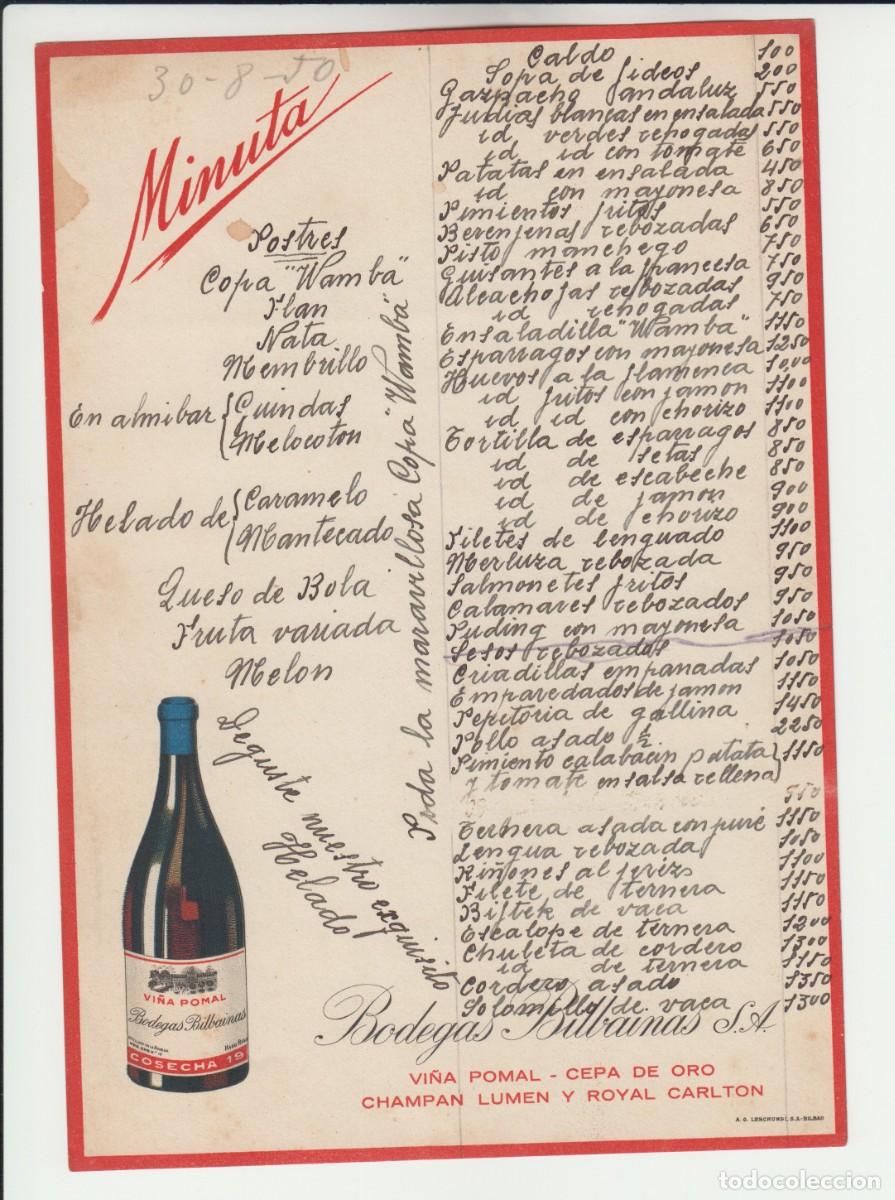 30-8-50
Minuta
Postres
Copa "Wamba"
Flan
Nata
Membrillo
En almibar { Guindas
Melocoton
Helado de { Caramelo
Mantecado
Queso de Bola
Fruta variada
Melon
Deguste nuestro exquisito
Helado
Pida la maravillosa Copa "Wamba"
Caldo 100
Sopa de fideos 200
Gazpacho andaluz 550
Judias blancas en ensalada 550
id verdes rehogadas 550
id id con tomate 650
Patatas en ensalada 450
id con mayonesa 850
Pimientos fritos 550
Berenjenas rebozadas 650
Pisto manchego 750
Guisantes a la francesa 750
Alcachofas rebozadas 950
id rehogadas 750
Ensaladilla "Wamba" 1150
Esparragos con mayonesa 1250
Huevos a la flamenca 1000
id fritos con jamon 1100
id id con chorizo 1100
Tortilla de esparragos 850
id de setas 850
id de escabeche 850
id de jamon 900
id de chorizo 900
Filetes de lenguado 1100
Merluza rebozada 950
Salmonetes fritos 950
Calamares rebozados 950
Puding con mayonesa 1050
Sesos rebozados 1050
Criadillas empanadas 1050
Emparedados de jamon 1150
Pepitoria de gallina 1450
Pollo asado ½ 2250
Pimiento calabacin patata } 1150
y tomate en salsa rellena
Ternera asada con puré 1150
Lengua rebozada 1050
Riñones al jerez 1100
Filete de ternera 1150
Biftek de vaca 1150
Escalope de ternera 1200
Chuleta de cordero 1300
id de ternera 1150
Cordero asado 1350
Solomillo de vaca 1300
VIÑA POMAL
Bodegas Bilbainas
COSECHA 19
Bodegas Bilbainas S.A.
VIÑA POMAL - CEPA DE ORO
CHAMPAN LUMEN Y ROYAL CARLTON
A. G. LERCHUNDI, S.A.-BILBAO
todocoleccion